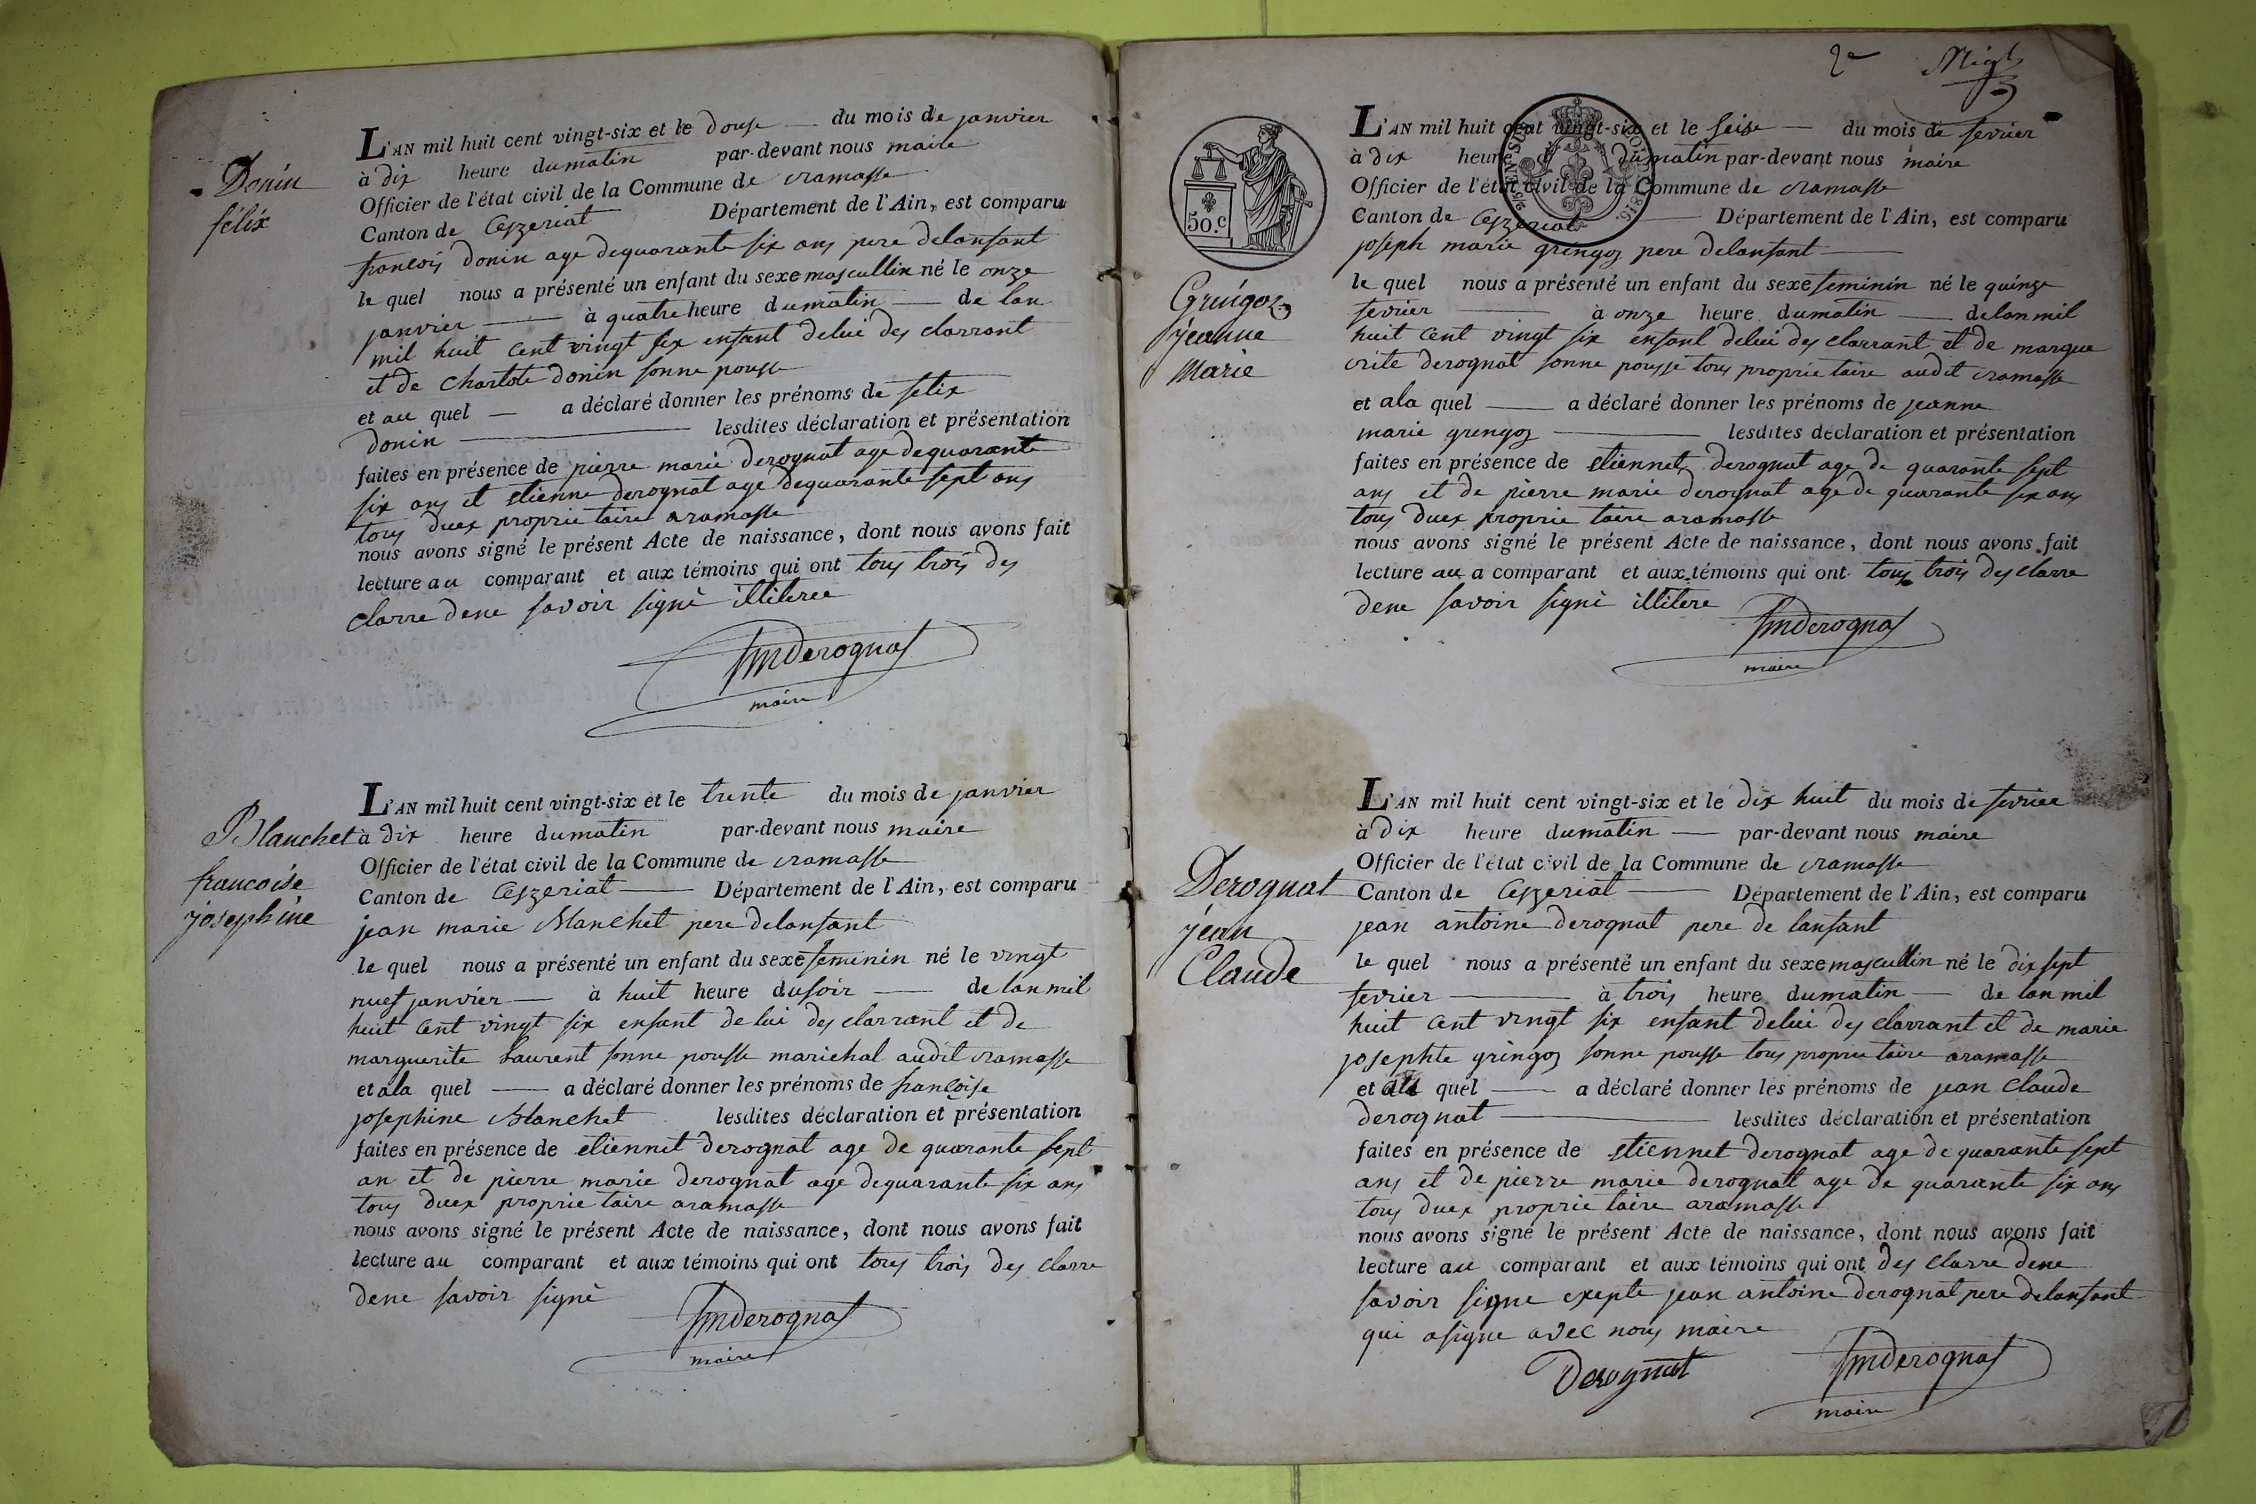 Donin
félix
L'AN mil huit cent vingt-six et le douse du mois de janvier
à dix heure du matin par-devant nous maire
Officier de l'état civil de la Commune de cramasse
Canton de Ceyzeriat Département de l'Ain, est comparu
francois donin age de quarante six ans pere delanfant
le quel nous a présenté un enfant du sexe mascullin né le onze
janvier à quatre heure du matin de lan
mil huit cent vingt six enfant delui des clarrant
et de charlote donin sonne pousse
et au quel a déclaré donner les prénoms de felix
donin lesdites déclaration et présentation
faites en présence de pierre marie derognat age de quarante
six ans et etienne derognat age de quarante sept ans
tous duex proprie taire aramasse
nous avons signé le présent Acte de naissance, dont nous avons fait
lecture au comparant et aux témoins qui ont tous trois des
clarre dene savoir signè illiteree
Derognat
maire
Blanchet
francoise
josephine
L'AN mil huit cent vingt-six et le trente du mois de janvier
à dix heure du matin par-devant nous maire
Officier de l'état civil de la Commune de cramasse
Canton de Ceyzeriat Département de l'Ain, est comparu
jean marie blanchet pere delanfant
le quel nous a présenté un enfant du sexe feminin né le vingt
nuef janvier à huit heure du soir de lan mil
huit cent vingt six enfant de lui des clarrant et de
marguerite Laurent sonne pousse marichal audit cramasse
et ala quel a déclaré donner les prénoms de françoise
josephine blanchet lesdites déclaration et présentation
faites en présence de etiennet derognat age de quarante sept
an et de pierre marie derognat age de quarante six ans
tous duex proprie taire aramasse
nous avons signé le présent Acte de naissance, dont nous avons fait
lecture au comparant et aux témoins qui ont tous trois des clarre
dene savoir signè
Derognat
maire
2e
50.c
Gringoz
jeanne
Marie
L'AN mil huit cent vingt-six et le seise du mois de fevrier
à dix heure du matin par-devant nous maire
Officier de l'état civil de la Commune de cramasse
Canton de Ceyzeriat Département de l'Ain, est comparu
joseph marie gringoz pere delanfant
le quel nous a présenté un enfant du sexe feminin né le quinze
fevrier à onze heure du matin de lan mil
huit cent vingt six enfant delui des clarrant et de margue
rite derognat sonne pousse tous proprie taire audit cramasse
et ala quel a déclaré donner les prénoms de jeanne
marie grengoz lesdites déclaration et présentation
faites en présence de etiennet derognat age de quarante sept
ans et de pierre marie derognat age de quarante six ans
tous duex proprie taire aramasse
nous avons signé le présent Acte de naissance, dont nous avons fait
lecture au a comparant et aux témoins qui ont tous trois des clarre
dene savoir signè illitere
Derognat
maire
Derognat
jean
Claude
L'AN mil huit cent vingt-six et le dix huit du mois de fevrier
à dix heure du matin par-devant nous maire
Officier de l'état civil de la Commune de cramasse
Canton de Ceyzeriat Département de l'Ain, est comparu
jean antoine derognat pere de lanfant
le quel nous a présenté un enfant du sexe mascullin né le dix sept
fevrier à trois heure du matin de lan mil
huit cent vingt six enfant delui des clarrant et de marie
josephte gringoz sonne pousse tous proprie taire aramasse
et quel a déclaré donner les prénoms de jean claude
derognat lesdites déclaration et présentation
faites en présence de etiennet derognat age de quarante sept
ans et de pierre marie derognatt age de quarante six ans
tous duex proprie taire aramasse
nous avons signé le présent Acte de naissance, dont nous avons fait
lecture au comparant et aux témoins qui ont des clarre dene
savoir signe exepte jean antoine derognat pere delanfant
qui asigne avec nous maire
Derognat
Derognat
maire